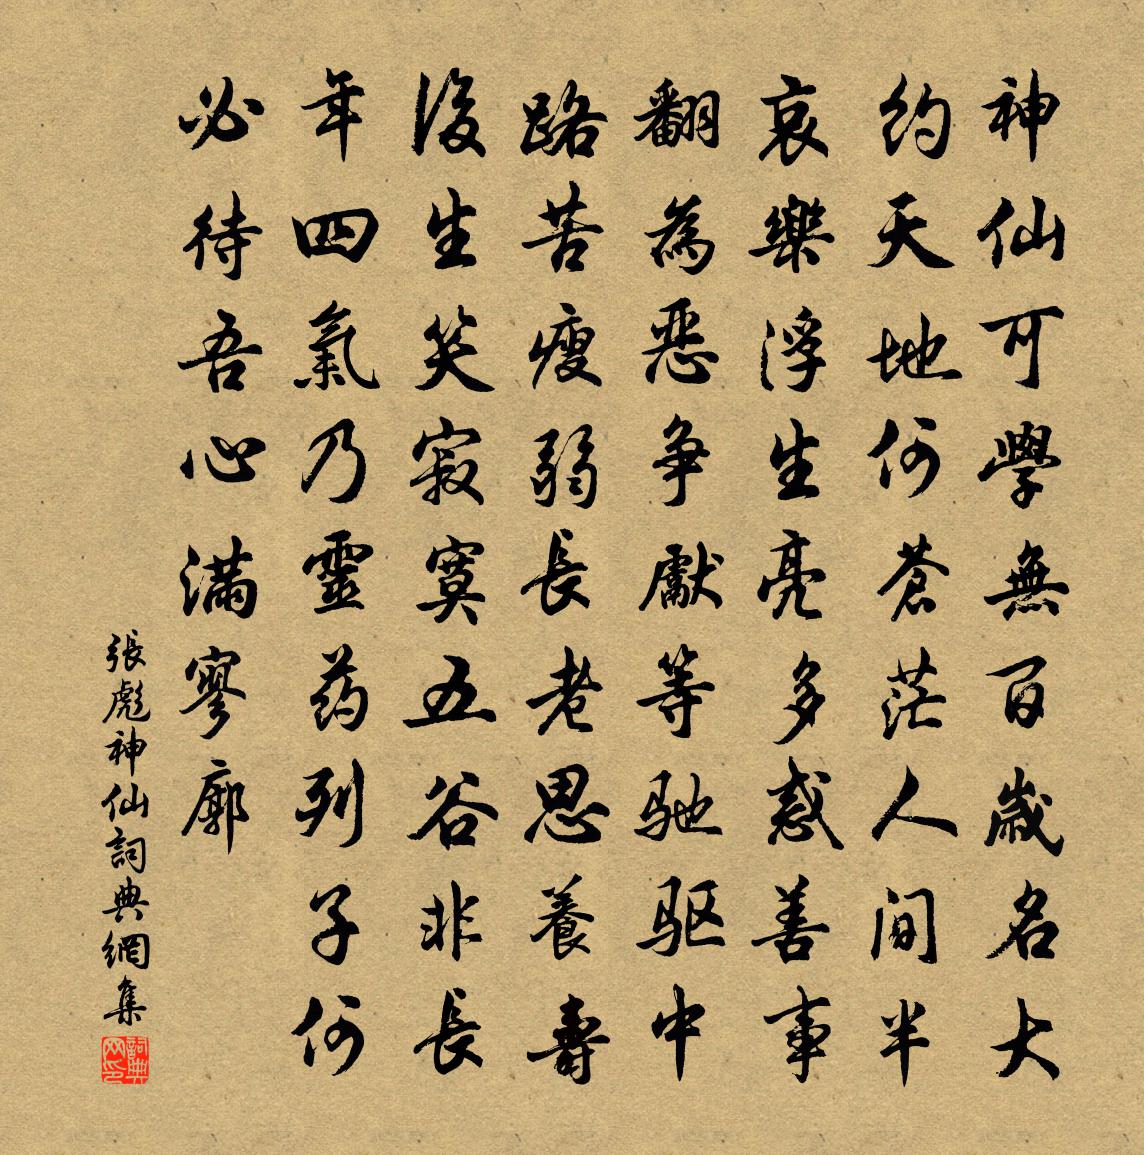 神仙可學無百歲名大
約天地何蒼茫人間半
哀樂浮生亮多惑善事
翻為惡争獻等驰驱中
路苦瘦弱長老思養壽
後生笑寂寞五谷非長
年四氣乃靈药列子何
必待吾心滿寥廓
張彪神仙詞典網集
詞典网印